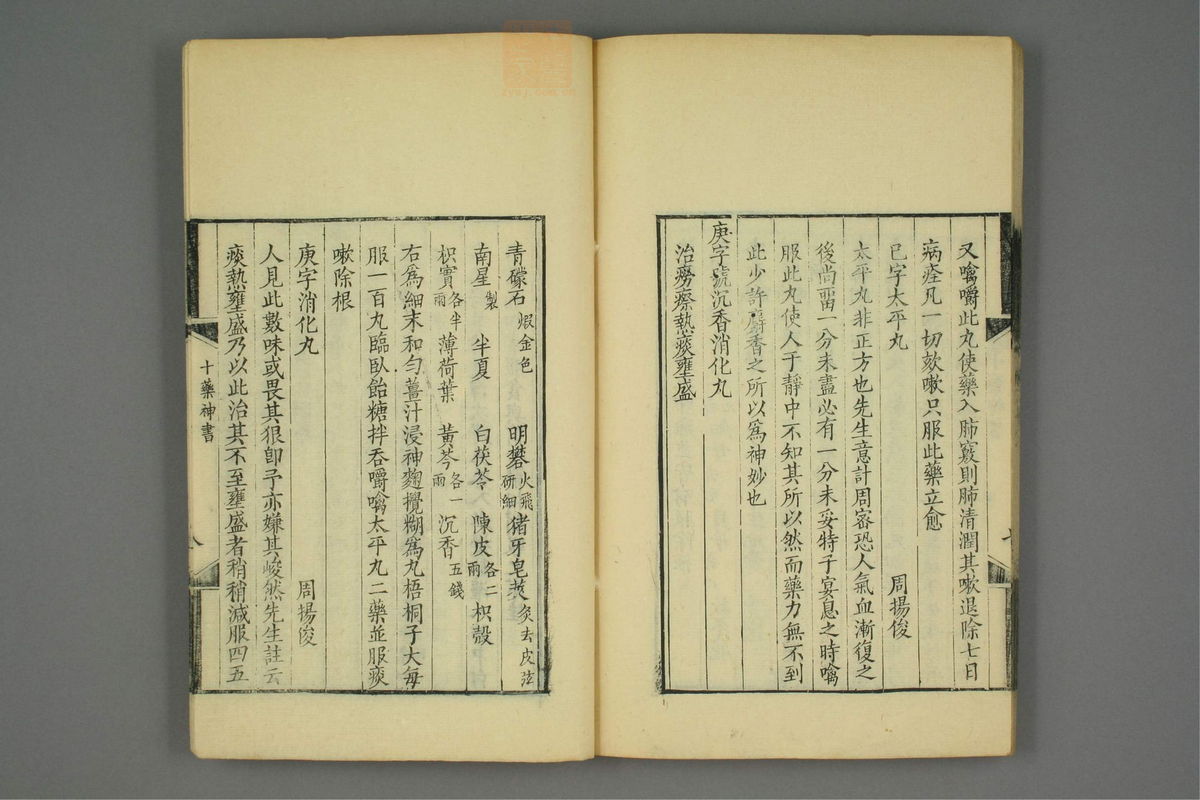 又噙嚼此丸使藥入肺竅則肺清潤其嗽退除七日
病痊凡一切欬嗽只服此藥立愈
已字太平丸　周揚俊
太平丸非正方也先生意計周密恐人氣血漸復之
後尚畱一分未盡必有一分未妥特子宴息之時噙
服此丸使人于靜中不知其所以然而藥力無不到
此少許麝香之所以爲神妙也
庚字號沉香消化丸
治勞瘵熱痰壅盛
青礞石煆金色　明礬火飛研細　猪牙皂莢炙去皮弦
南星製　半夏　白茯苓　陳皮各二兩　枳殼
枳實各半兩　薄荷葉　黃芩各一兩　沉香五錢
右爲細末和勻薑汁浸神麯攪糊爲丸梧桐子大每
服一百丸臨臥飴糖拌吞嚼噙太平丸二藥並服痰
嗽除根
庚字消化丸　周揚俊
人見此數味或畏其狠卽予亦嫌其峻然先生註云
痰熱壅盛乃以此治其不至壅盛者稍稍減服四五
十藥神書